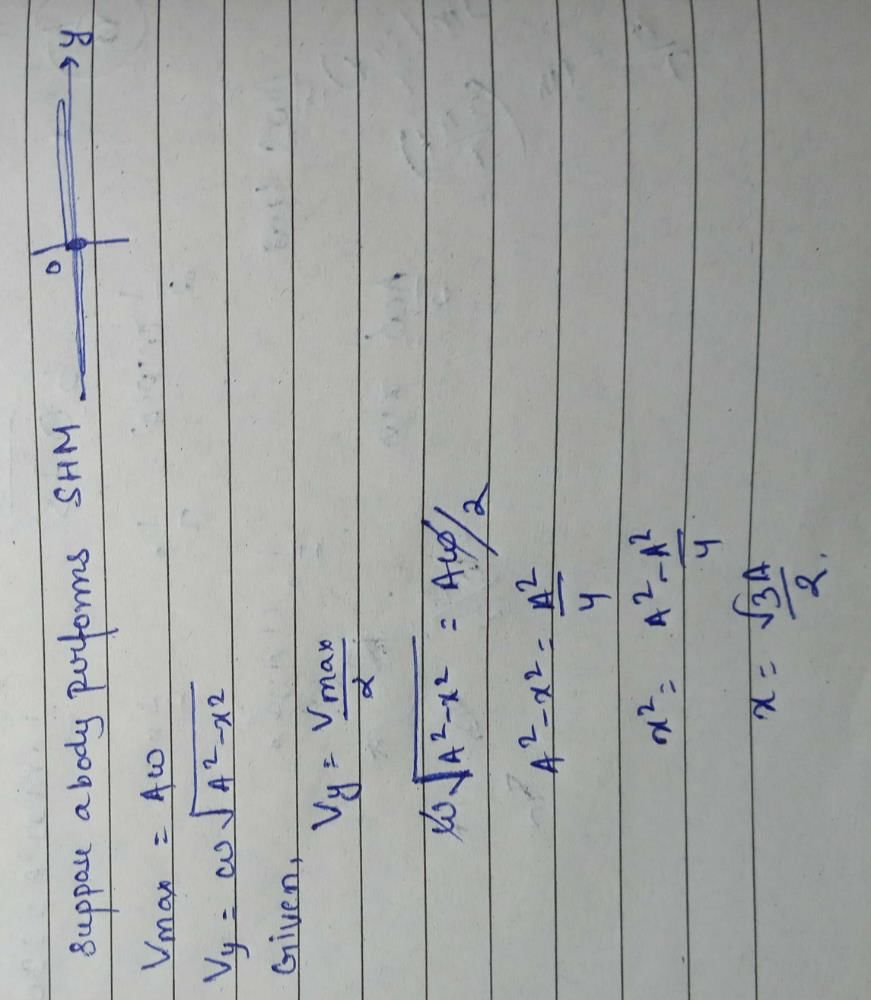 Suppose a body performs SHM
O → y
Vmax = Aω
Vy = ω√A²-x²
Given,
Vy = Vmax/2
ω√A²-x² = Aω/2
A²-x² = A²/4
x² = A²-A²/4
x = √3A/2.